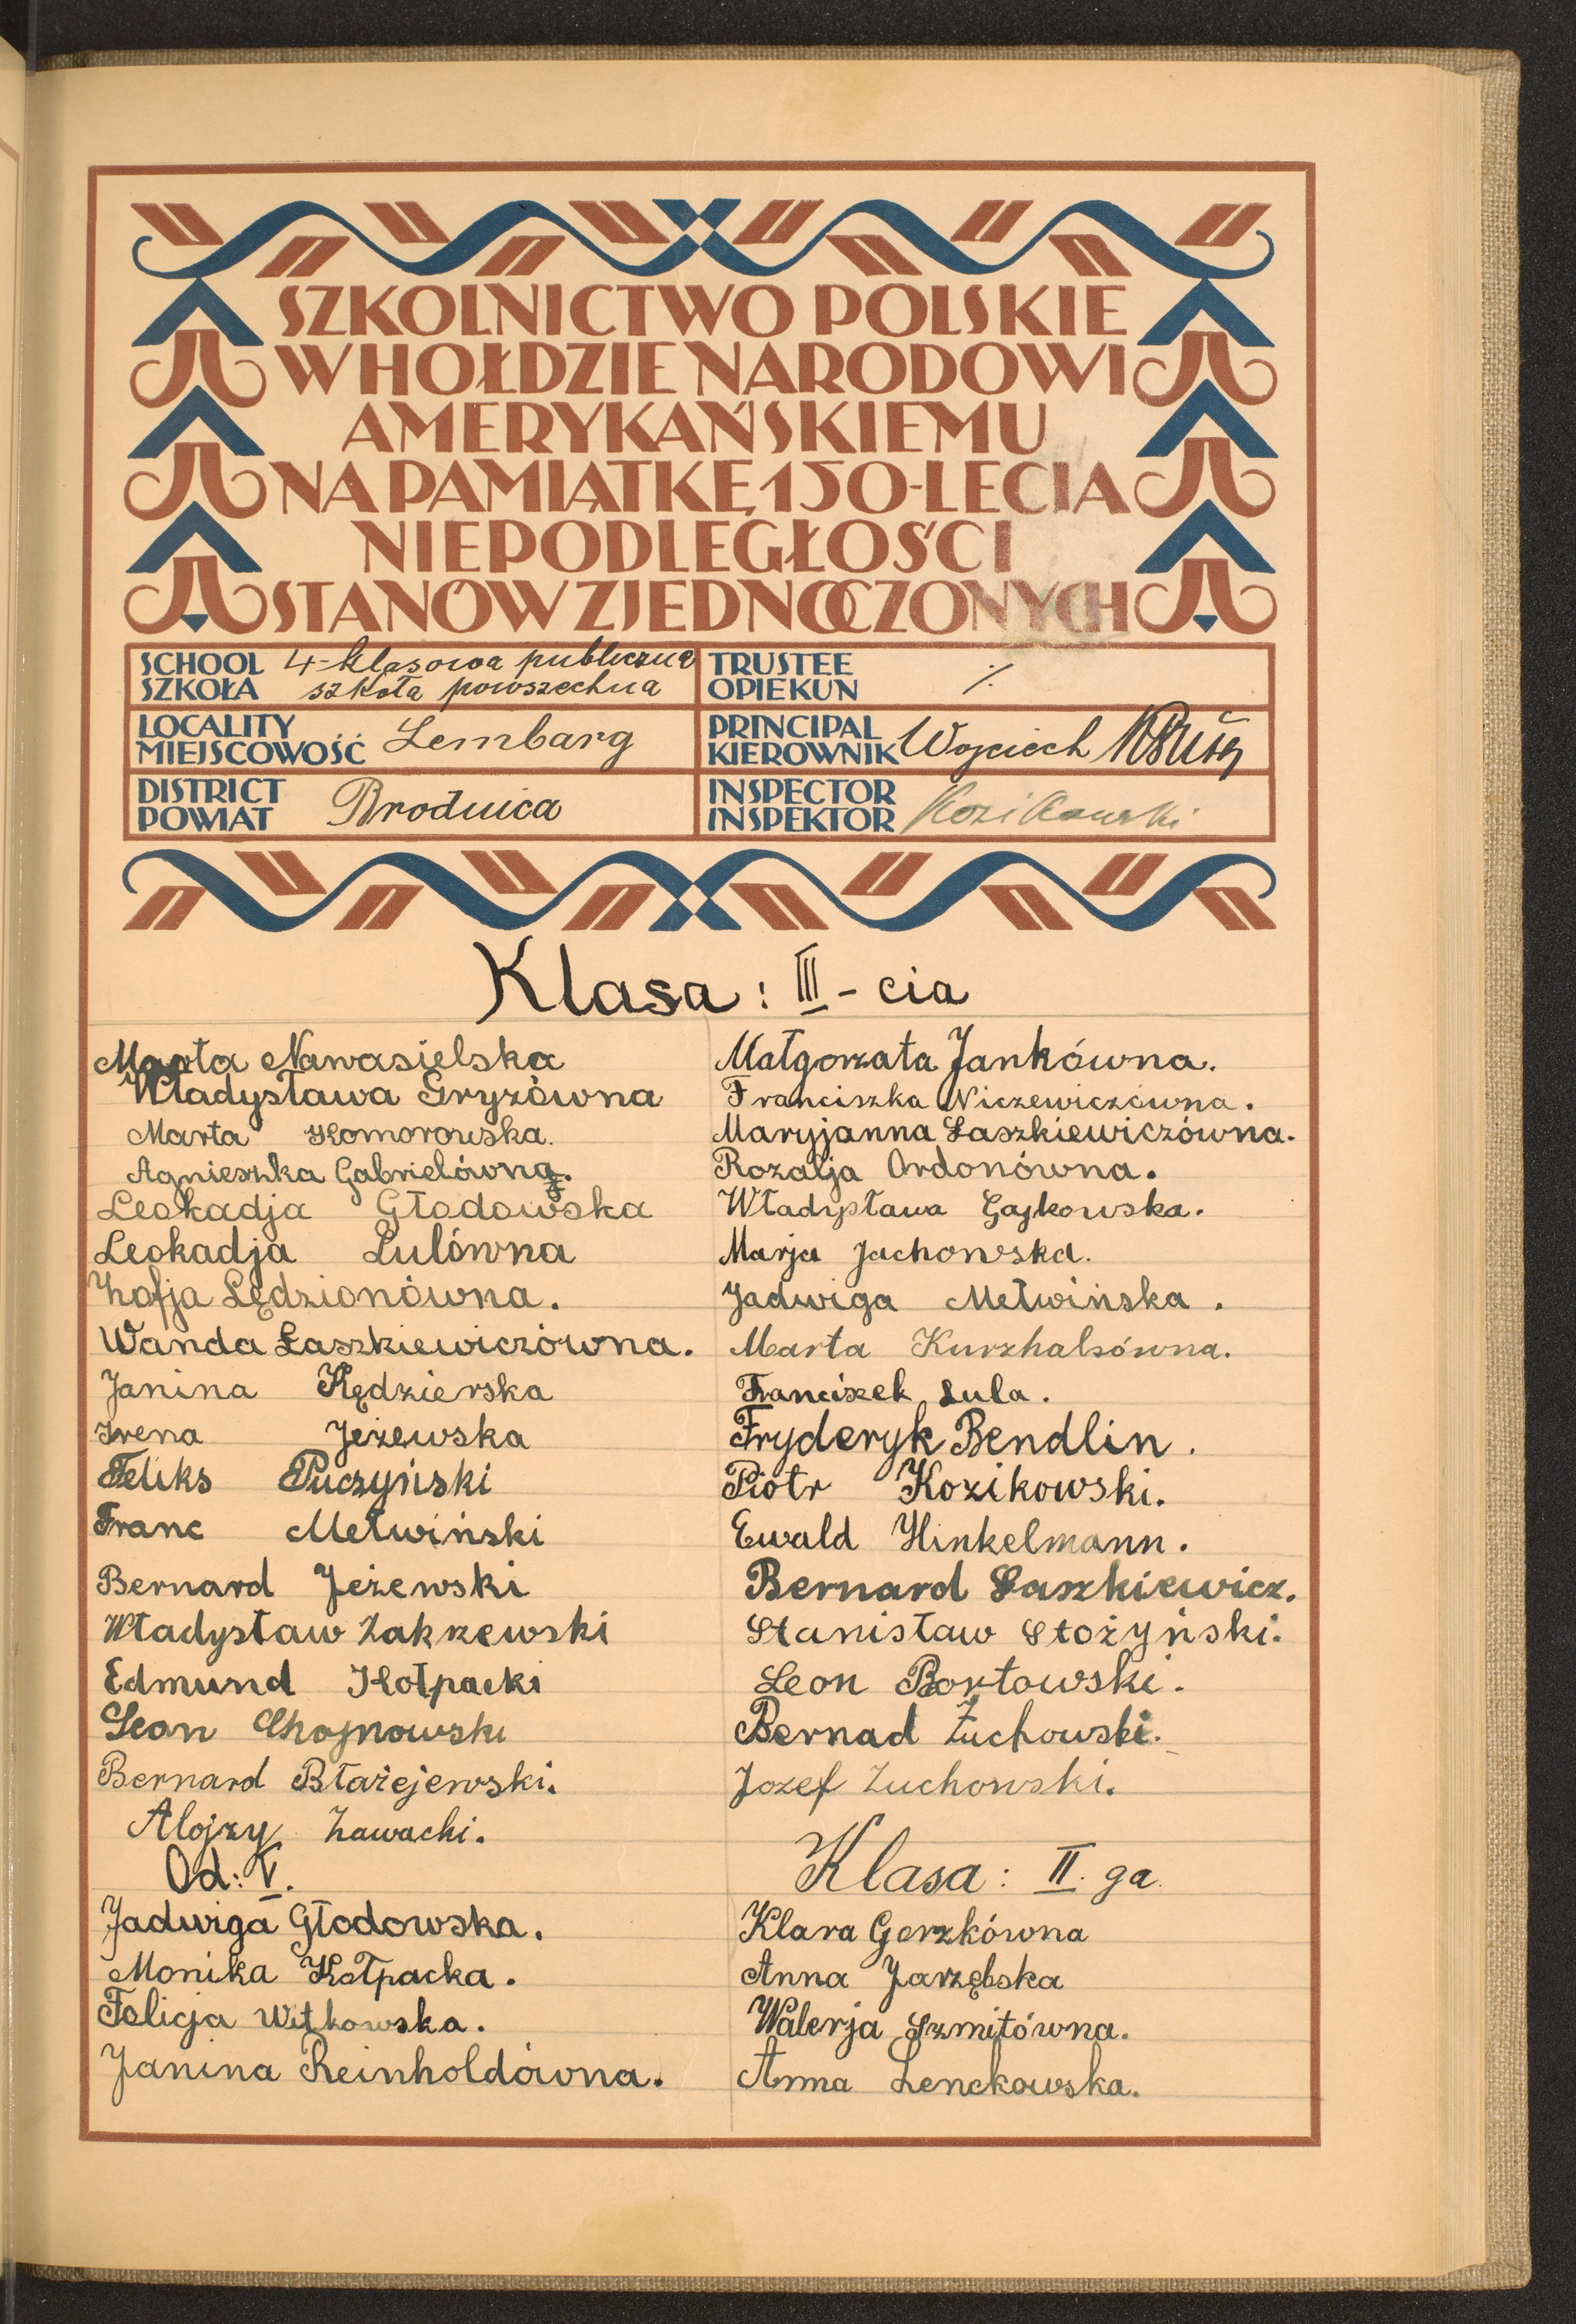 SZKOLNICTWO POLSKIE
W HOŁDZIE NARODOWI
AMERYKAŃSKIEMU
NA PAMIĄTKĘ 150-LECIA
NIEPODLEGŁOŚCI
STANÓW ZJEDNOCZONYCH
SCHOOL
SZKOŁA
4-klasowa publiczna
szkoła powszechna
TRUSTEE
OPIEKUN
LOCALITY
MIEJSCOWOŚĆ
Lembarg
PRINCIPAL
KIEROWNIK
Wojciech
DISTRICT
POWIAT
Brodnica
INSPECTOR
INSPEKTOR
Kozikowski
Klasa: III-cia
Marta Nawasielska
Władysława Gryzówna
Marta Komorowska.
Agnieszka Gabrielówna.
Leokadja Głodowska
Leokadja Lulówna
Zofja Lędzionówna.
Wanda Łaszkiewiczówna.
Janina Kędzierska
Irena Jeżewska
Feliks Puczyński
Franc Metwiński
Bernard Jeżewski
Władysław Zakrzewski
Edmund Kołpacki
Leon Chojnowski
Bernard Błażejewski.
Alojzy Zawacki.
Od: V.
Jadwiga Głodowska.
Monika Kołpacka.
Felicja Witkowska.
Janina Reinholdówna.
Małgorzata Jankówna.
Franciszka Niczewiczówna.
Maryjanna Łaszkiewiczówna.
Rozalja Ordonówna.
Władysława Gajkowska.
Marja Jachowska.
Jadwiga Metwińska.
Marta Kurzhalsówna.
Franciszek Lula.
Fryderyk Bendlin.
Piotr Kozikowski.
Ewald Hinkelmann.
Bernard Łaszkiewicz.
Stanisław Stożyński.
Leon Bortowski.
Bernad Żuchowski.
Jozef Zuchowski.
Klasa: II. ga.
Klara Gerzkówna
Anna Jarzębska
Walerja Szmitówna.
Anna Lenckowska.